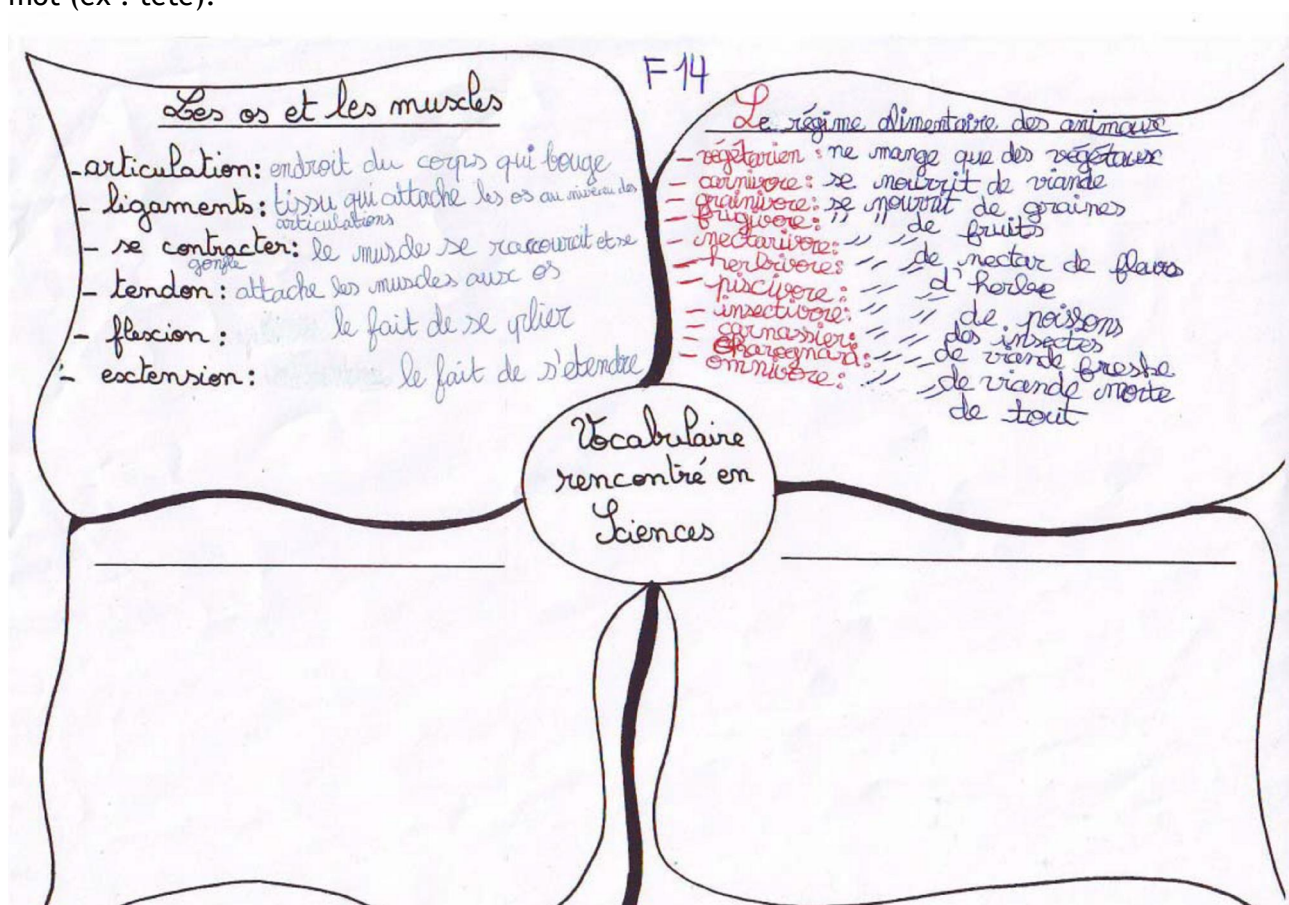 mot (ex : tête).
F 14
Les os et les muscles
- articulation : endroit du corps qui bouge
- ligaments : tissu qui attache les os au niveau des
articulations
- se contracter : le muscle se raccourcit et se
gonfle
- tendon : attache les muscles aux os
- flexion : le fait de se plier
- extension : le fait de s'étendre
Le régime alimentaire des animaux
- végétarien : ne mange que des végétaux
- carnivore : se nourrit de viande
- grainivore : se nourrit de graines
- frugivore : " " de fruits
- nectarivore : " " de nectar de fleurs
- herbivore : " " d'herbe
- piscivore : " " de poissons
- insectivore : " " des insectes
- carnassier : " " de viande freshe
- charognard : " " de viande morte
omnivore : " " de tout
Vocabulaire
rencontré en
Sciences